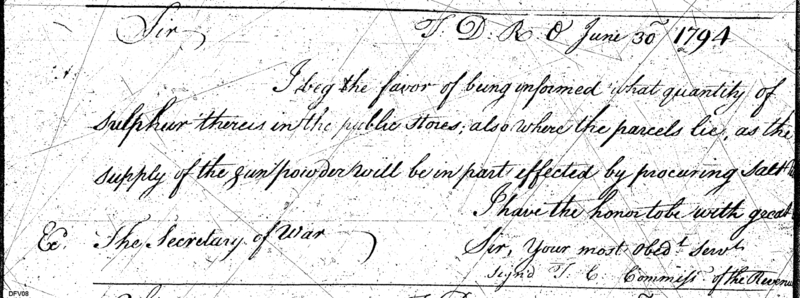 Sir T. D. R. O June 30th 1794
I beg the favor of being informed what quantity of
sulphur there is in the public stores, also where the parcels lie, as the
supply of the gun powder will be in part effected by procuring salt
I have the honor to be with great
The Secretary of War
Sir, Your most Obedt Servt
signd T. C. Commissr of the Revenue
DFV08